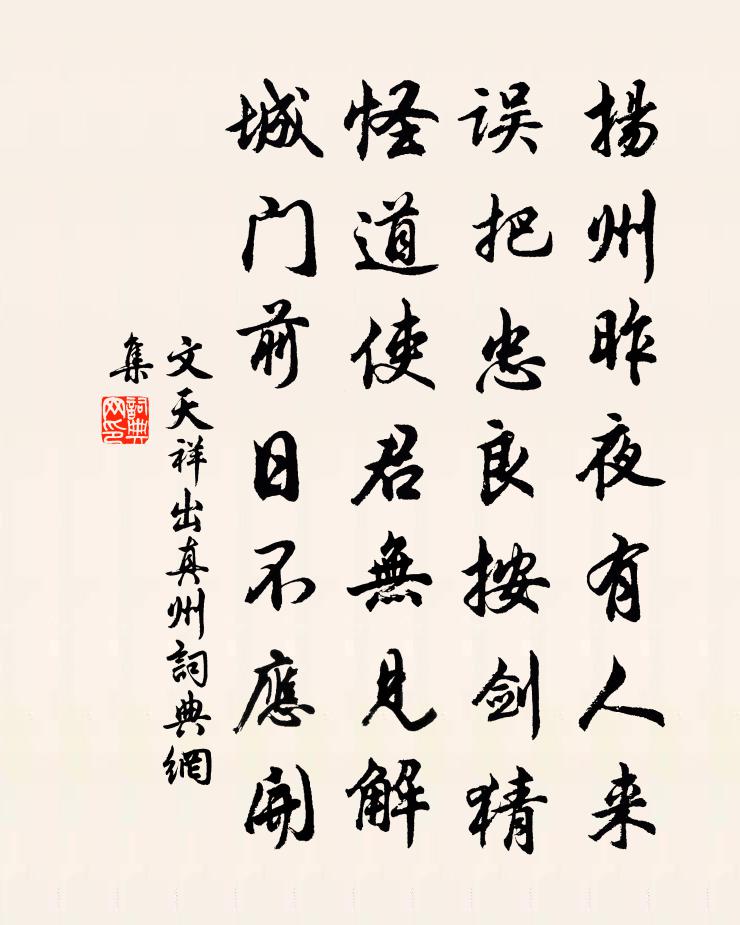 揚州昨夜有人来
误把忠良按剑猜
怪道使君無见解
城门前日不應開
文天祥出真州詞典網
集
詞典网印